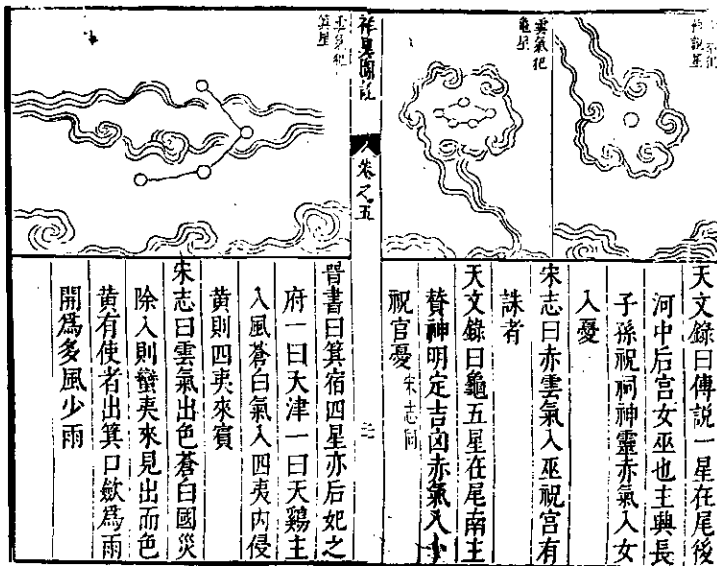 傅說星
雲氣犯
龜星
天文錄曰傅說一星在尾後
河中后宮女巫也主興長
子孫祝祠神靈赤氣入女
入憂
宋志曰赤雲氣入巫祝官有
誅者
天文錄曰龜五星在尾南主
贊神明定吉凶赤氣入卜
祝官憂 宋志同
祥異圖說
卷之五
雲氣犯
箕星
晉書曰箕宿四星亦后妃之
府一曰天津一曰天鷄主
入風蒼白氣入四夷內侵
黃則四夷來賓
宋志曰雲氣出色蒼白國災
除入則蠻夷來見出而色
黃有使者出箕口斂爲雨
開爲多風少雨